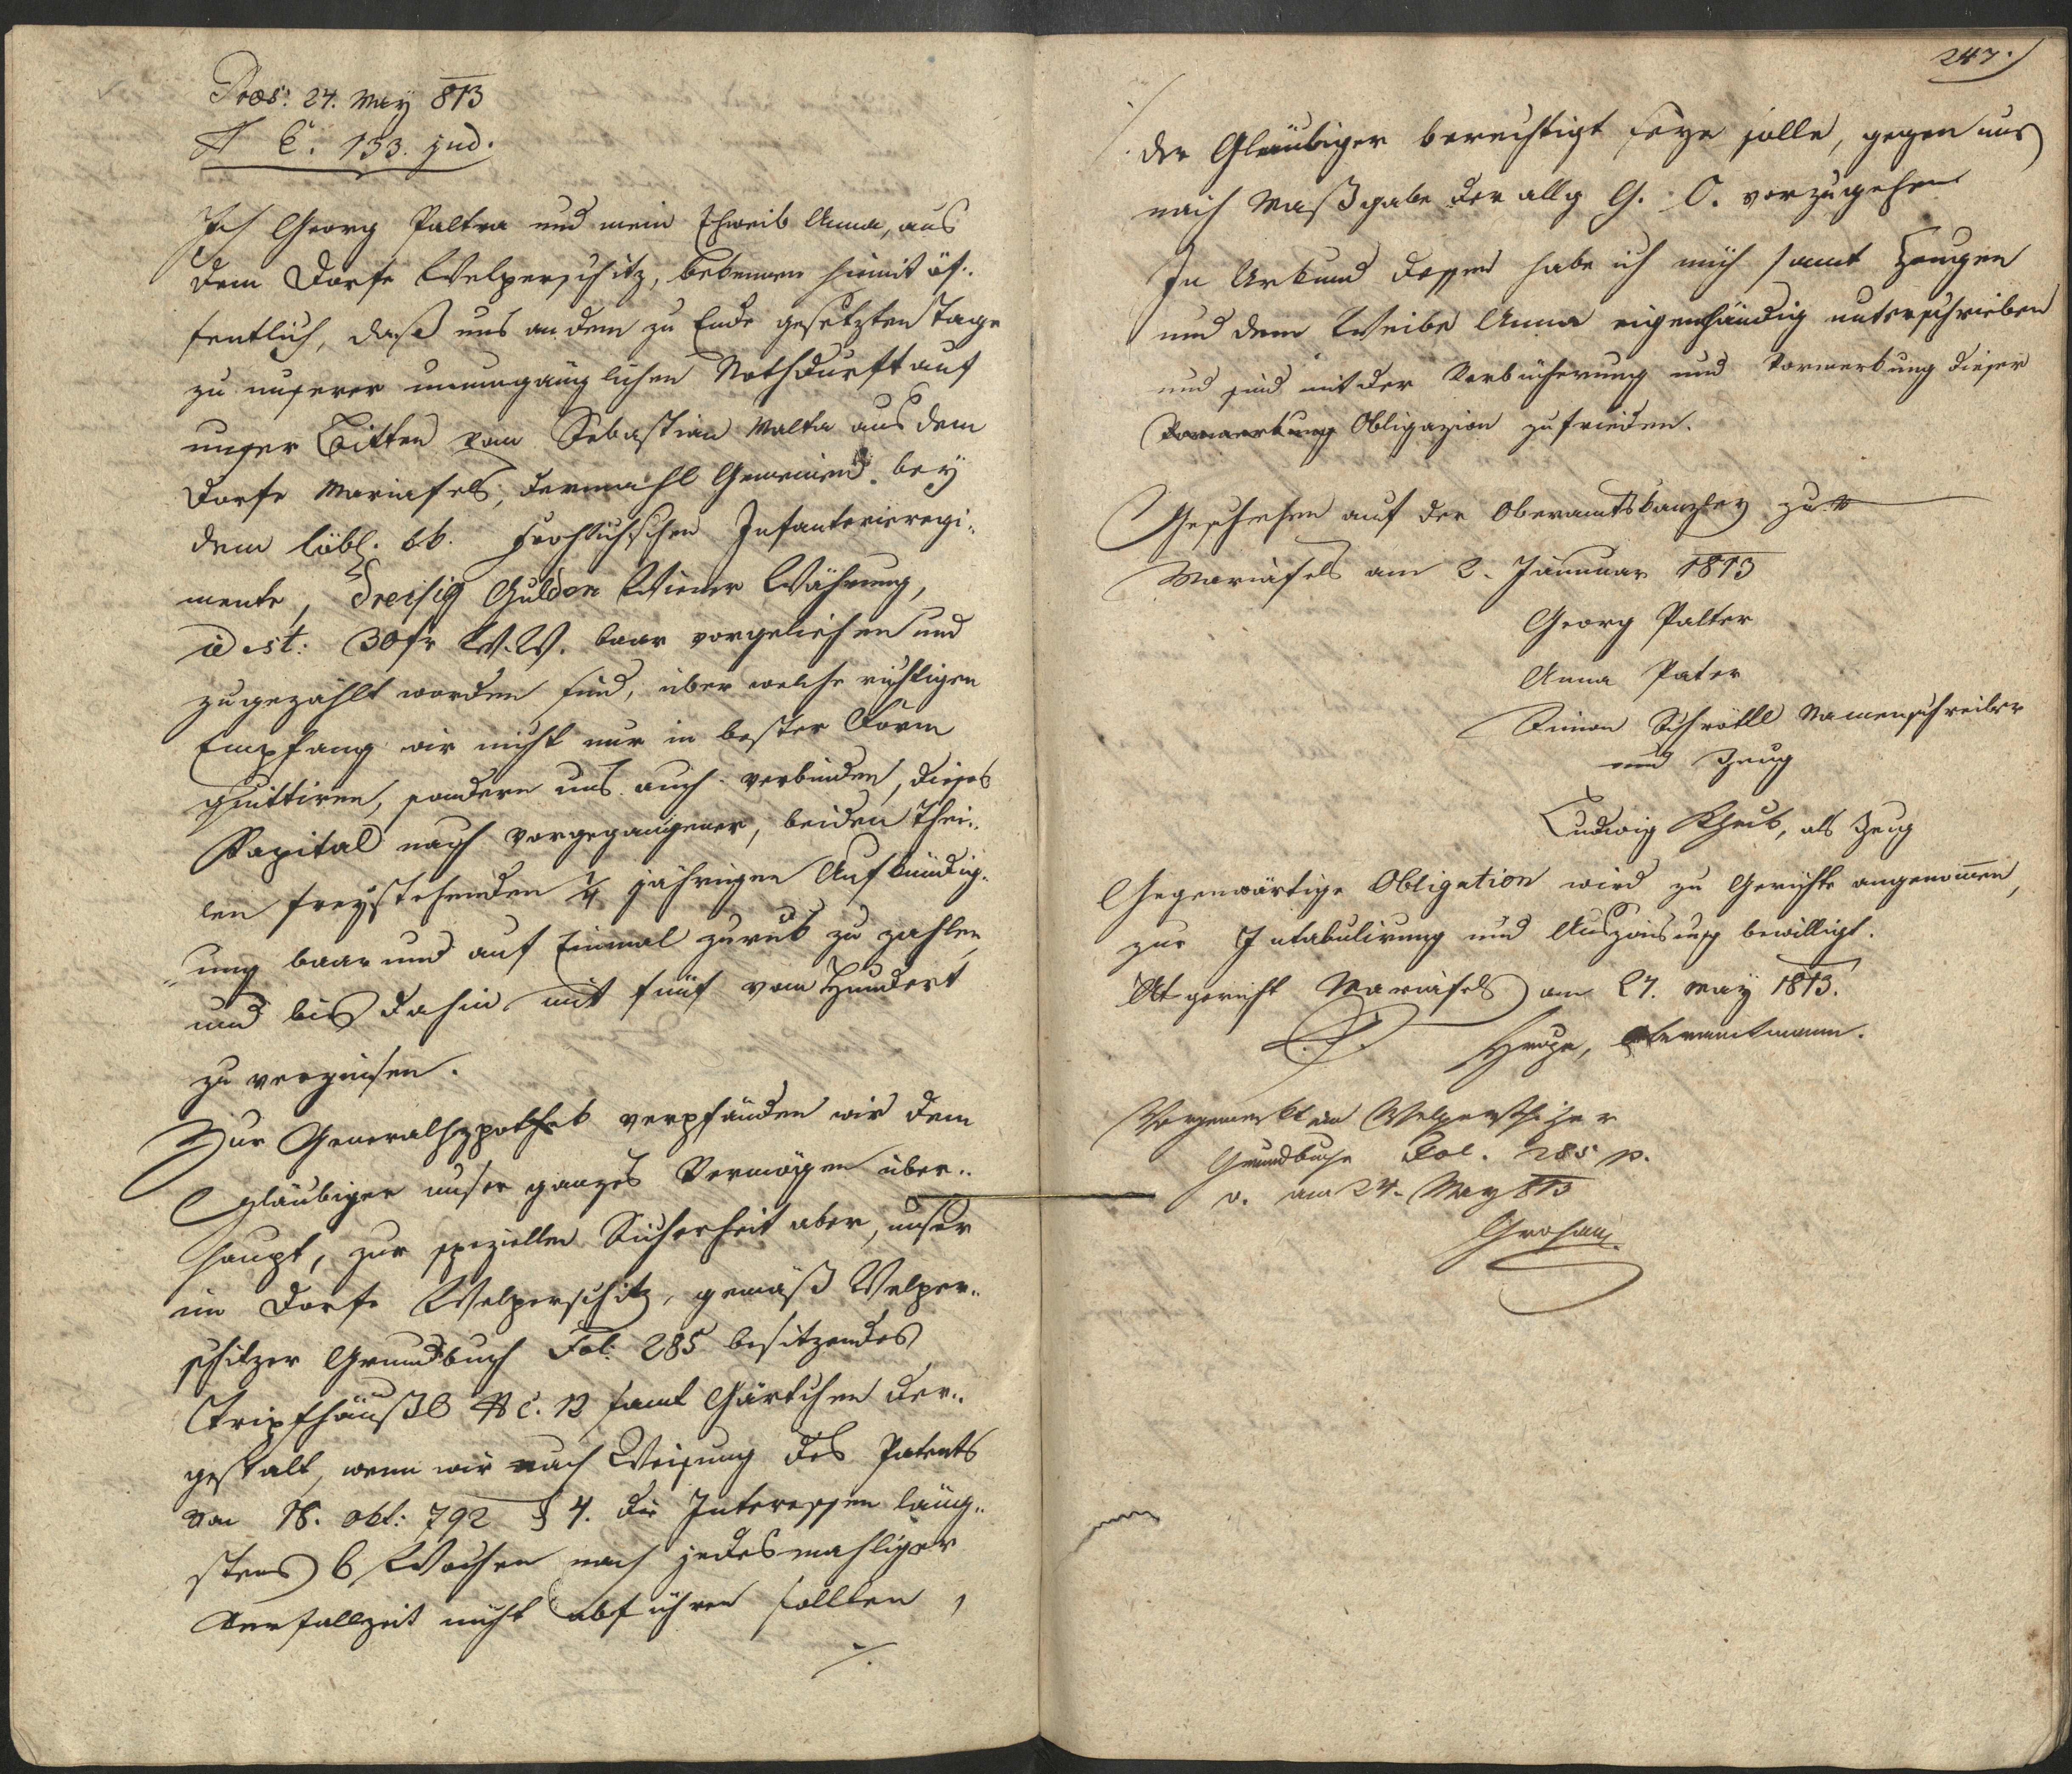 Præs: 24. May 813
N E. 133. jud.
Ich Georg Palter und mein Eheweib Anna, aus
dem Dorfe Welperschitz, bekennen hiemit öf-
fentlich, daß uns an dem zu Ende gesetzten Tage
zu unserer unumgänglichen Nothdurft auf
unser Bitten vom Sebastian Malter aus dem
Dorfe Mariafels, dermahl Gemeinen bey
dem löbl. kk. Frohlichschen Infanterieregi-
mente, Dreisig Gulden Wiener Währung,
id est: 30 fr W.W. baar vorgeliehen und
zugezählt worden sind, über welche richtigen
Empfang wir nicht nur in bester Form
quittiren, sondern uns auch verbinden, dieses
Kapital nach vorgegangener, beiden Thei-
len freystehenden 1/4 jährigen Aufkündig-
ung baar und auf Einmal zurük zu zahlen,
und bis dahin mit fünf vom Hundert
zu verzinsen.
Zur Generalhypothek verpfänden wir dem
Gläubiger unser ganzes Vermögen über-
haupt, zur speziellen Sicherheit aber, unser
im Dorfe Welperschitz, gemäß Welper-
schitzer Grundbuch Fol: 285 besitzendes
Tripfhäußl N C. 12 samt Gärtchen der-
gestalt, wenn wir nach Weisung des Patents
vom 18. Okt: 792 § 4. die Interessen läng-
stens 6 Wochen nach jedesmahliger
Verfallzeit nicht abführen sollten,
./.
247.
./. der Gläubiger berechtigt seye solle, gegen uns
nach Maßgabe der allg G. O. vorzugehen
In Urkund dessen habe ich mich samt Zeugen
und dem Weibe Anna eigenhändig unterschrieben
und sind mit der Verbücherung und Vormerkung dieser
Vormerkung Obligazion zufrieden.
Geschehen auf der Oberamtskanzley zu
Mariafels am 2. Jannuar 1813
Georg Palter
Anna Pater
Simon Schrötll Namenschreiber
und Zeug
Ludwig, als Zeug
Gegenwärtige Obligation wird zu Gerichte angenomen,
zur Intabulirung und bewilligt.
Mariafels am 27. May 1813.
L.S. Oberamtmann.
Vorgemerkt im Welperschitzer
Grundbuche Fol. 285 p.
v. am 24. May 813
Grohan